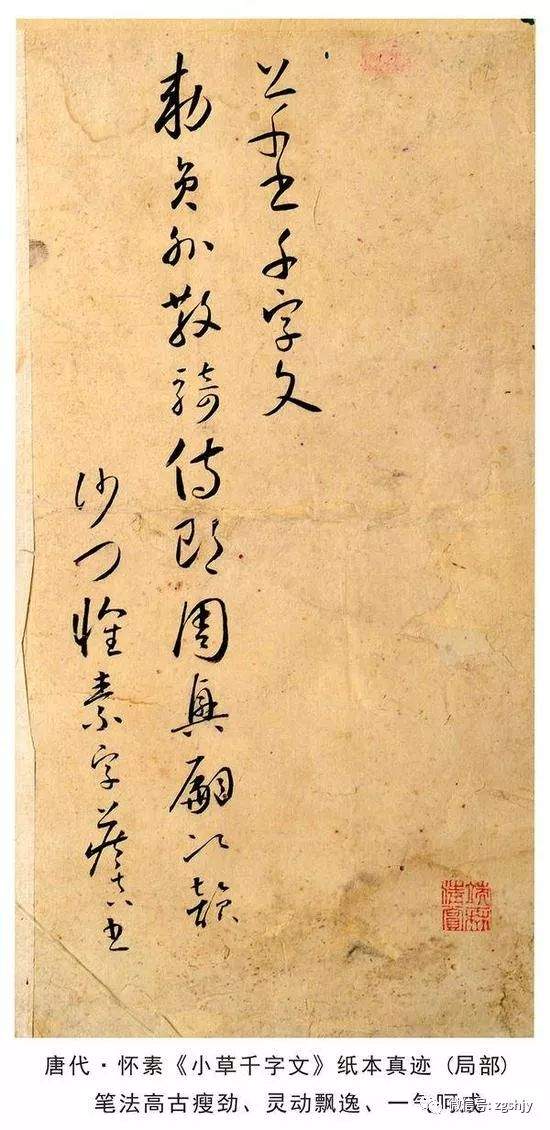 草書千字文
勅員外散騎侍郎周興嗣次韻
沙門懷素字藏真書
唐代·怀素《小草千字文》纸本真迹 (局部)
笔法高古瘦劲、灵动飘逸、一气呵成
微信号: zgshjy